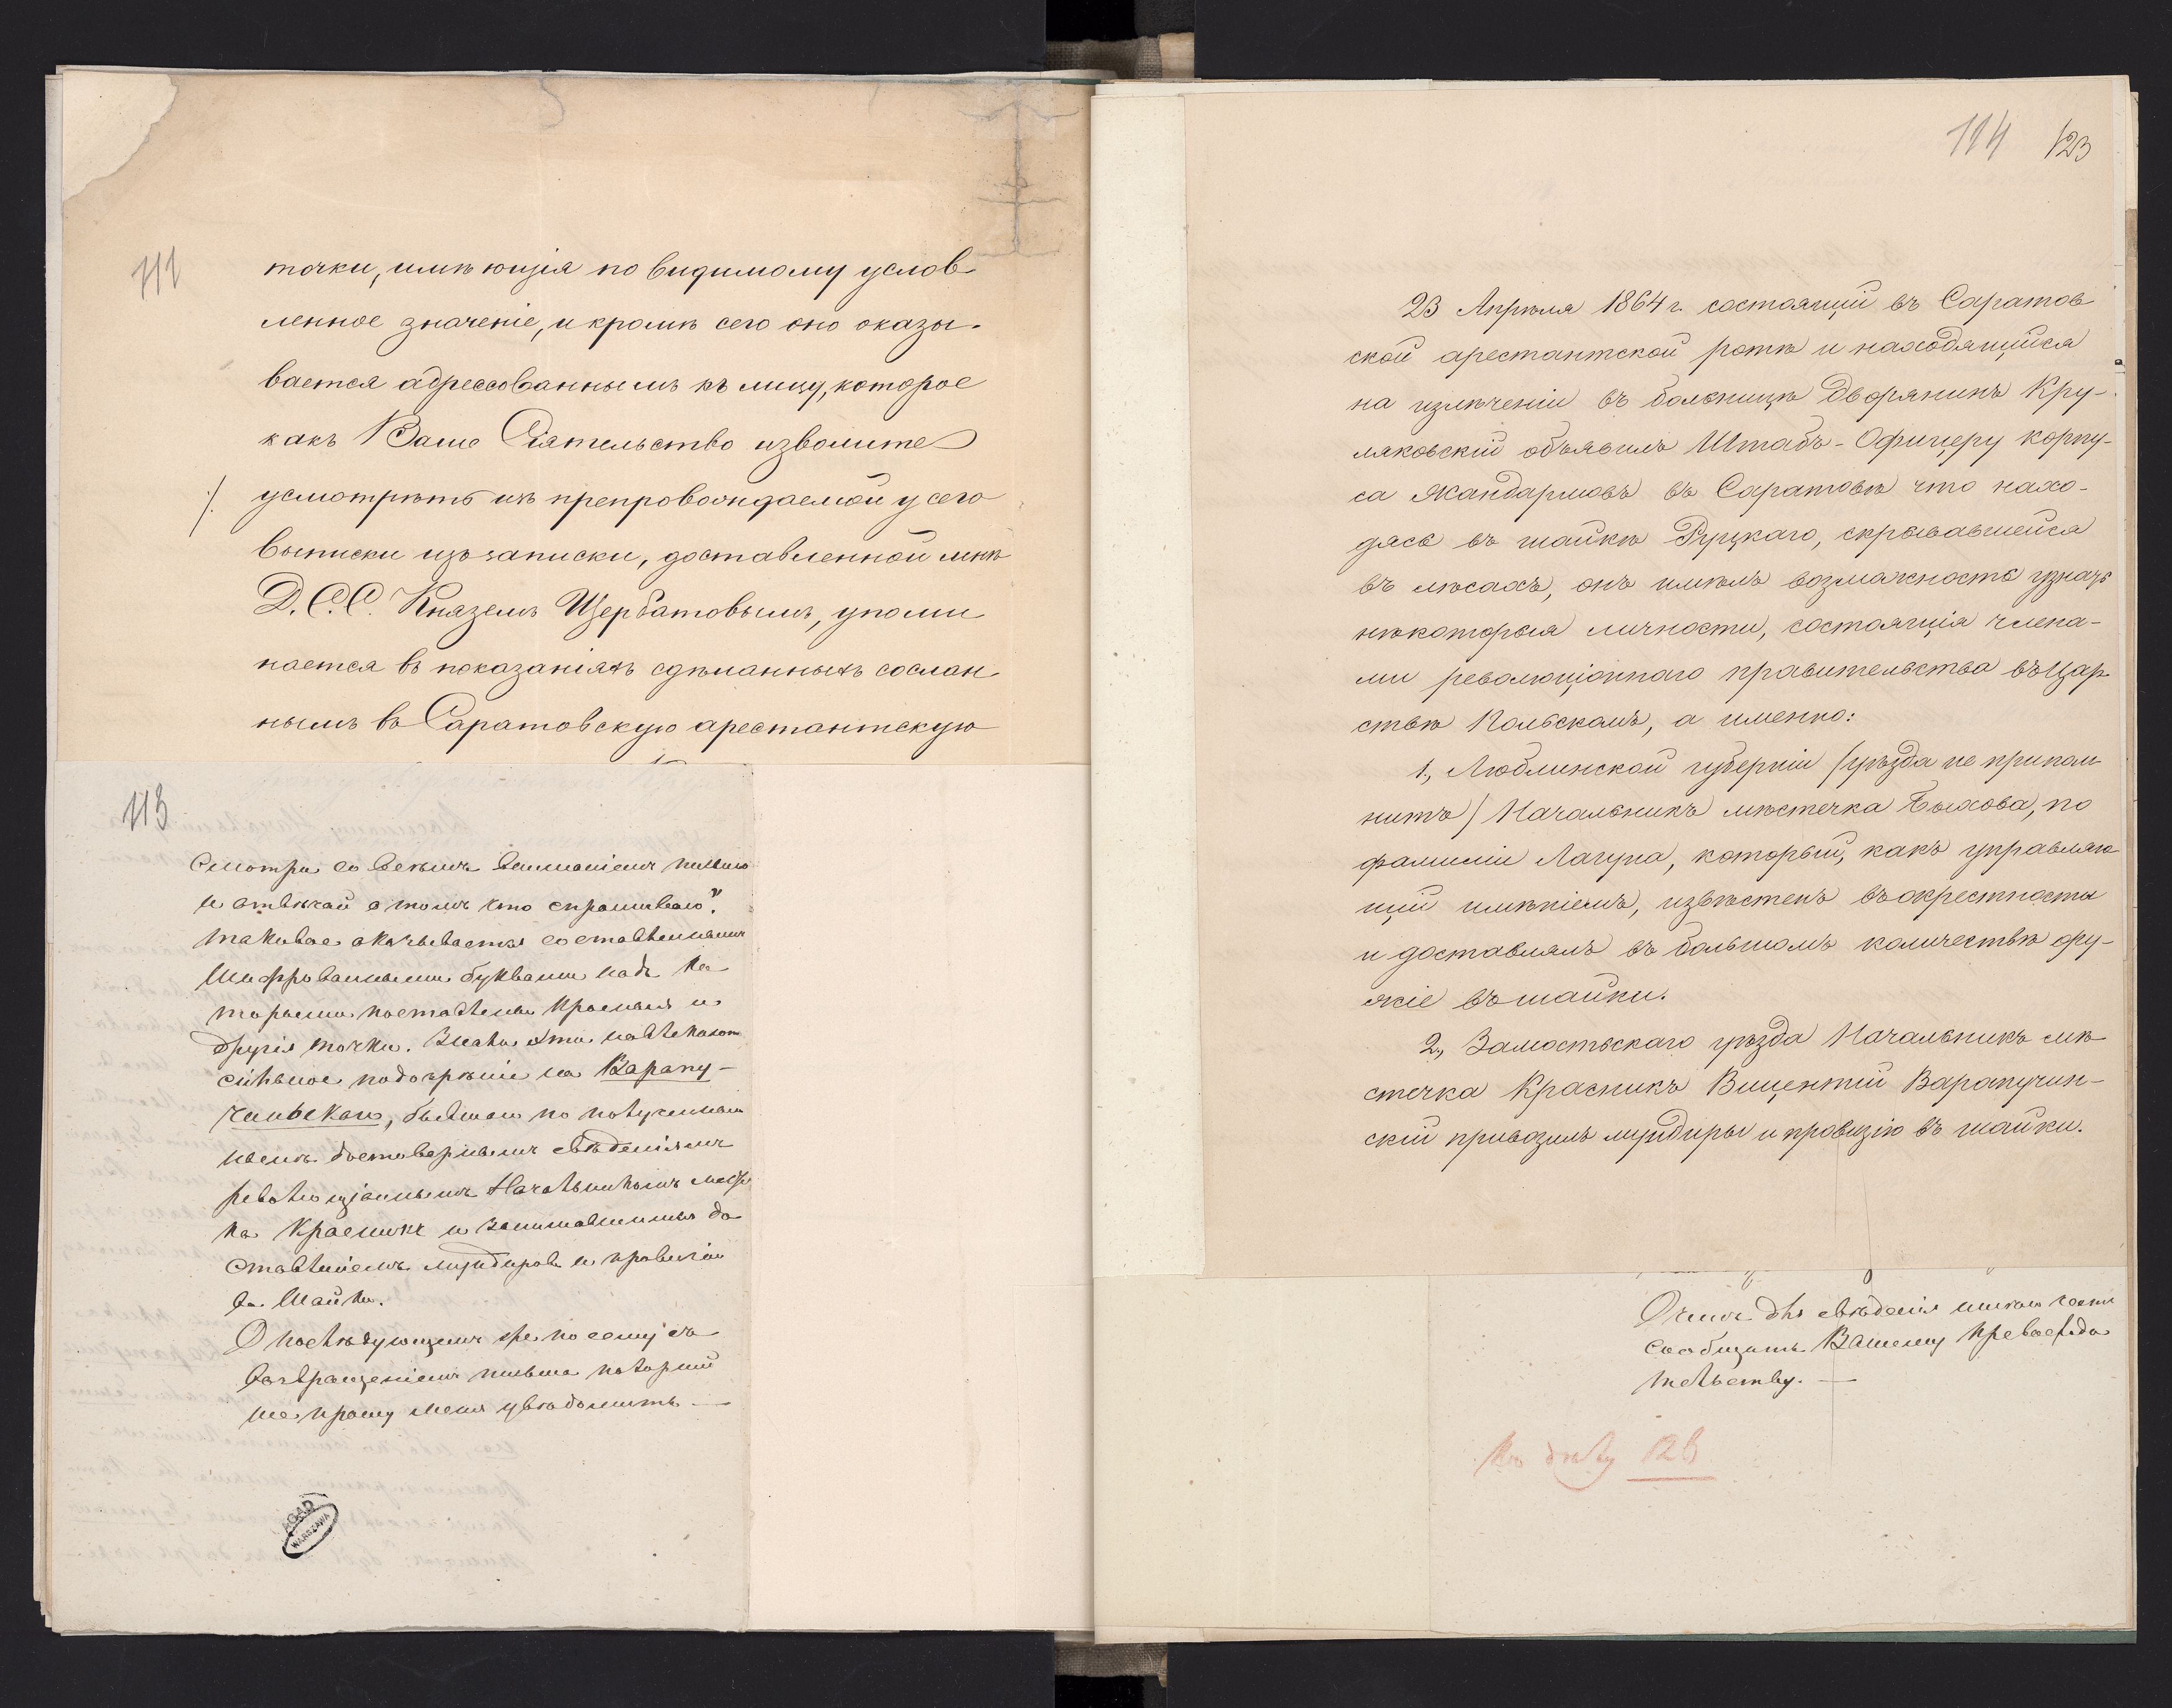 111
точки, имѣющія по видимому услов
ленное значеніе, и кромѣ сего оно оказы-
вается адрессованнымъ къ лицу, которое
какъ Ваше Сіятельство изволите
усмотрѣть изъ препровождаемой у сего
выписки изъ записки, доставленной мнѣ
Д.С.С. Княземъ Щербатовымъ, упоми
нается въ показаніяхъ сдѣланныхъ сослан
нымъ въ Саратовскую арестантскую
113
Смотри со всѣмъ вниманіемъ письмо
и отвѣчай о томъ что спрашиваю".
таковое оказывается составленнымъ
шифрованными буквами надъ ко
торыми поставлены красныя и
другія точки. Знаки эти навлекаютъ
сильное подозрѣніе на Варапу-
чинскаго, бывшаго по полученнымъ
достовернымъ свѣденіямъ
революціоннымъ Начальникомъ мѣст
ка Красникъ и занимавшимся до
ставленіемъ мундировъ и провизіи
въ шайки.
О послѣдующемъ же по сему съ
возвращеніемъ письма покорнѣй
ше прошу меня увѣдомить —
AGAD
WARSZAWA
114 123
23 Апрѣля 1864 г. состоящій въ Саратов
ской арестантской ротѣ и находящийся
на излѣченіи въ больницѣ дворянинъ Кру-
ляковскій объявилъ Штабъ-Офицеру корпу-
са Жандармовъ въ Саратовѣ что нахо-
дясь въ шайкѣ Руцкаго, скрывавшейся
въ лѣсахъ, онъ имѣлъ возможность узнать
нѣкоторыя личности, состоящія члена-
ми революціоннаго правительства въ Цар
ствѣ Польскомъ, а именно:
1., Люблинской губерніи /уѣзда не припом
нитъ/ Начальникъ мѣстечка Быхова, по
фамиліи Лагуна, который, какъ управляю
щій имѣніемъ, извѣстенъ въ окрестности
и доставлялъ въ большомъ количествѣ ору-
жіе въ шайки.
2., Замостьскаго уѣзда Начальникъ мѣ
стечка Красникъ Вицентій Варапучин-
скій привозилъ мундиры и провизію въ шайки.
О чемъ для свѣденія имѣю честь
сообщить Вашему Превосходи
тельству. —
Къ дѣлу 126